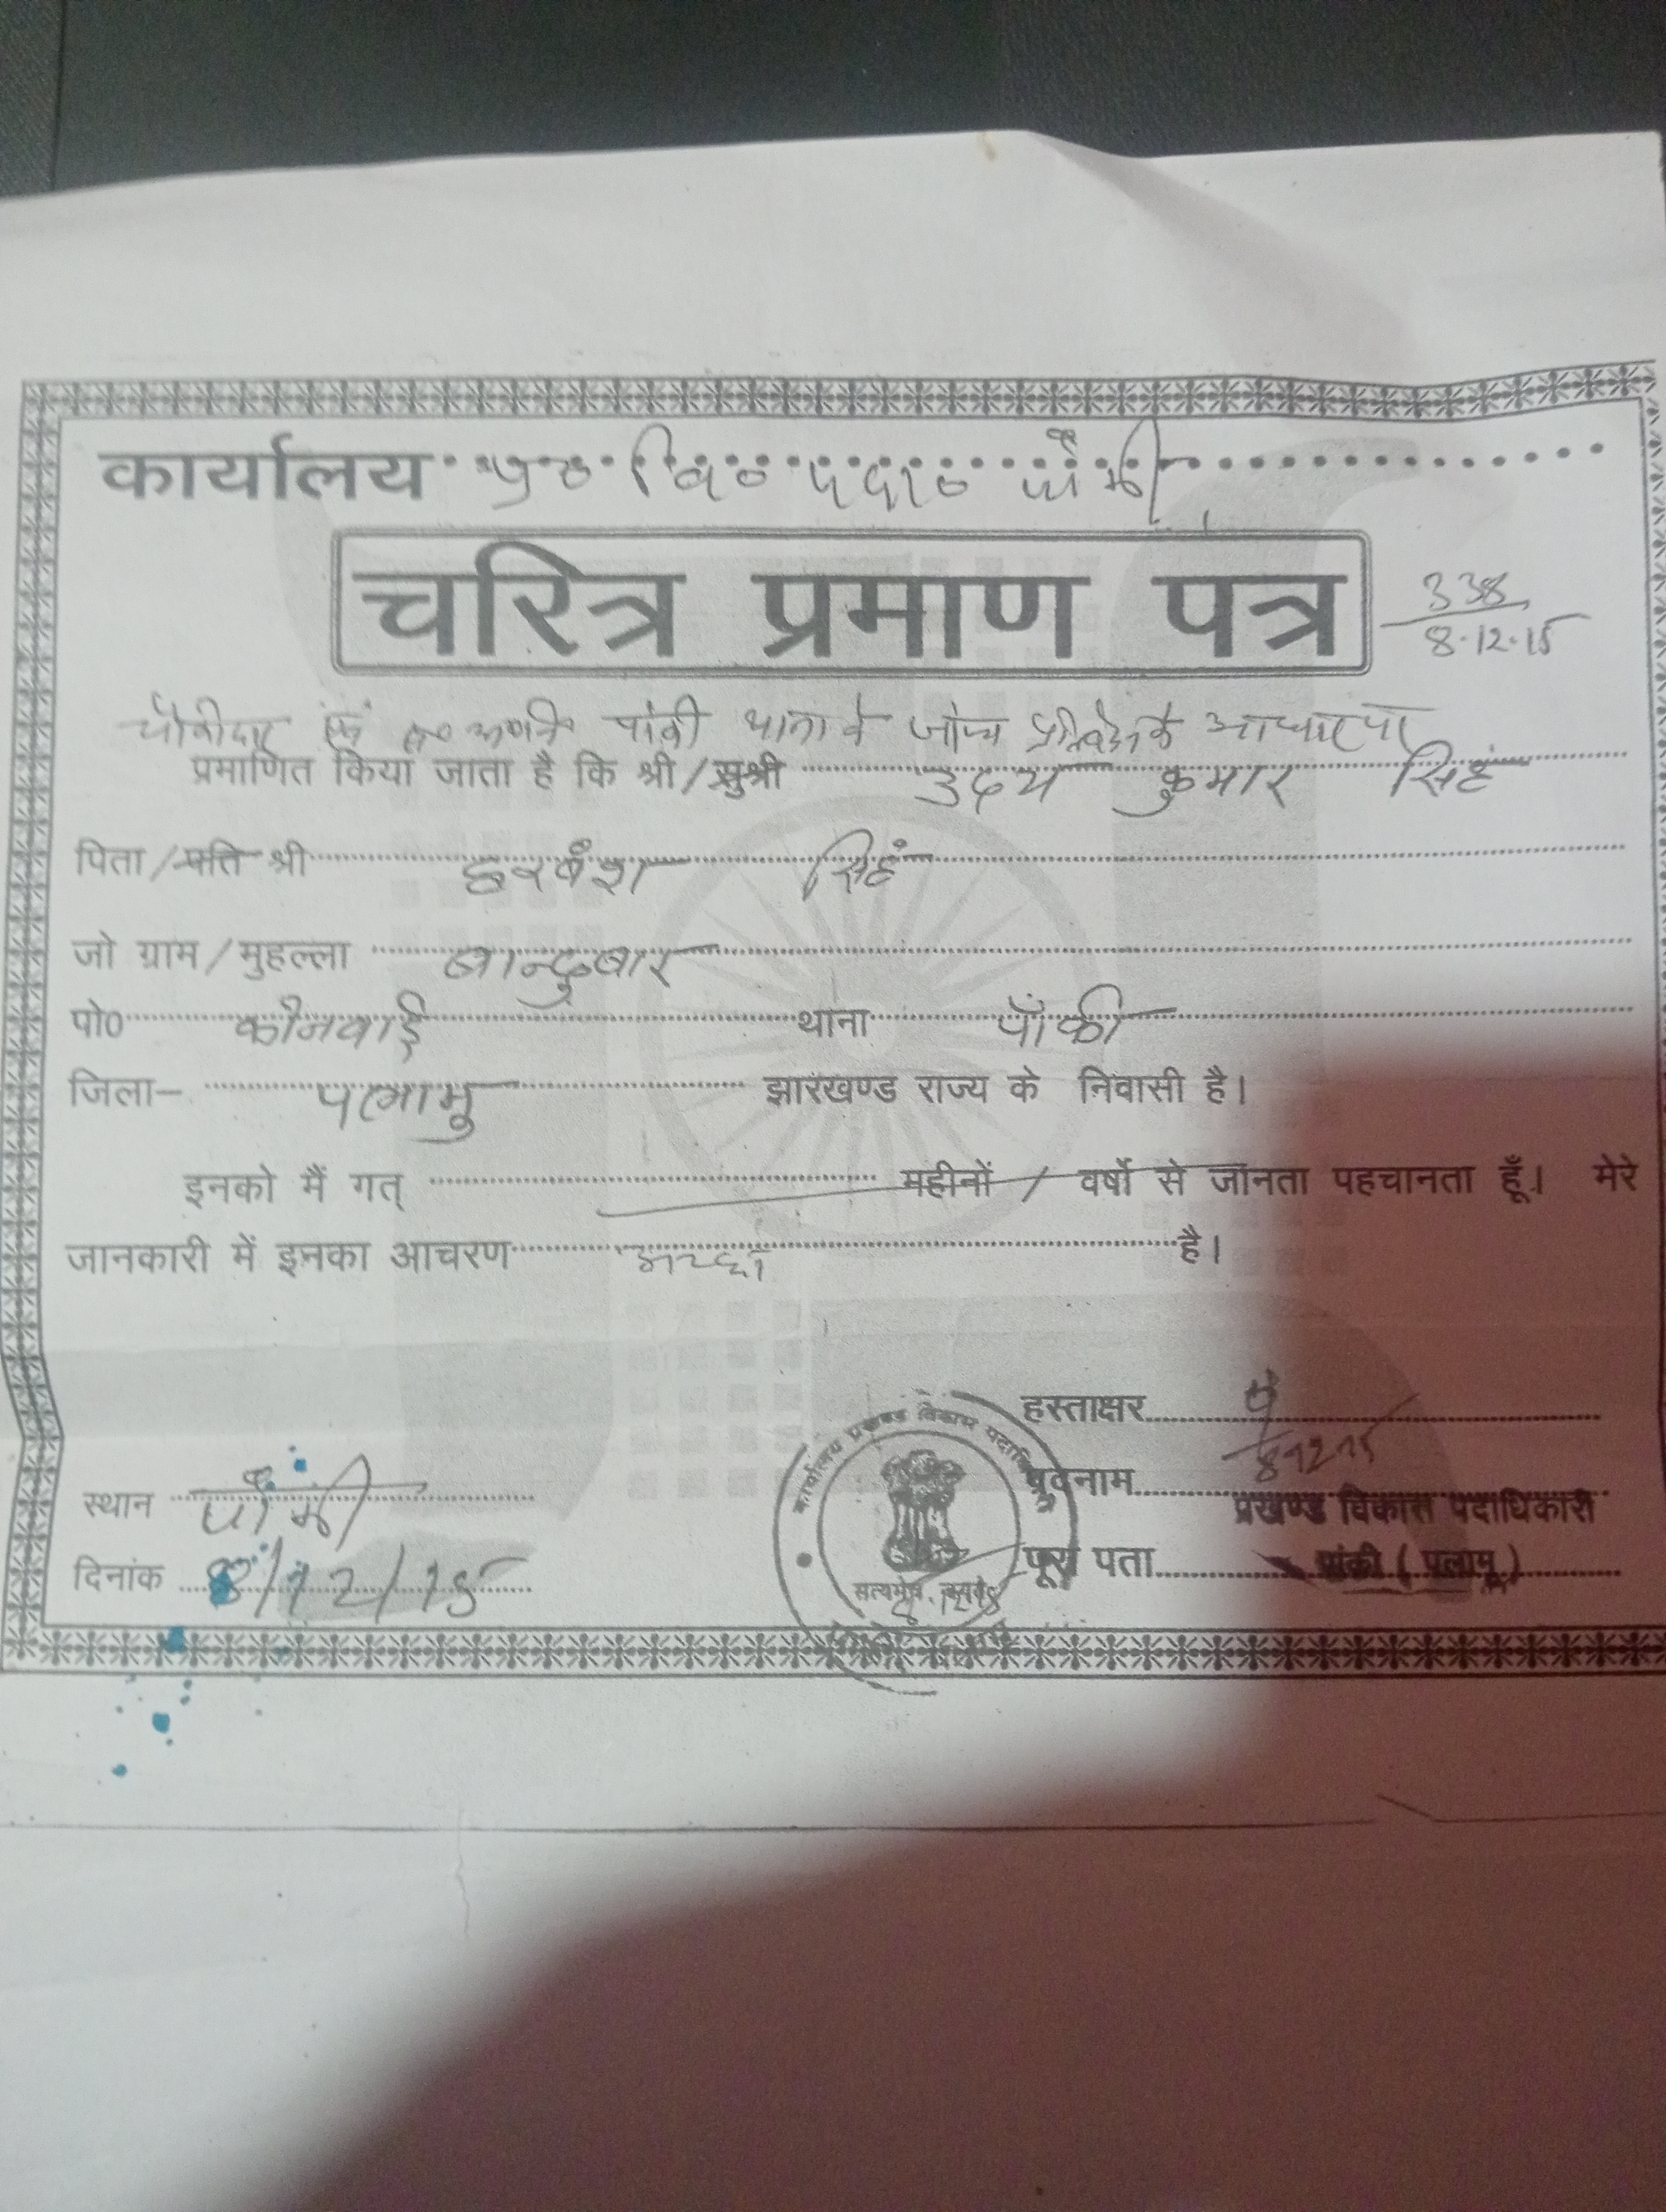 कार्यालय प्र० वि० पदा० पाँकी
चरित्र प्रमाण पत्र
338
8.12.15
चौकीदार एवं पांकी थाना के जाँच प्रतिवेदन के आधार पर
प्रमाणित किया जाता है कि श्री / सुश्री उदय कुमार सिहं
पिता / पति श्री हरबंश सिहं
जो ग्राम / मुहल्ला बान्दुबार
पो० कोनवाई थाना पाँकी
जिला- पलामु झारखण्ड राज्य के निवासी है।
इनको मैं गत् महीनों / वर्षो से जानता पहचानता हूँ। मेरे
जानकारी में इनका आचरण अच्छा है।
हस्ताक्षर
8.12.15
स्थान पाँकी
पूवनाम
प्रखण्ड विकास पदाधिकारी
दिनांक 8/12/15
पूरा पता पांकी ( पलामू )
कार्यालय प्रखण्ड विकास पदाधि
सत्यमेव जयते